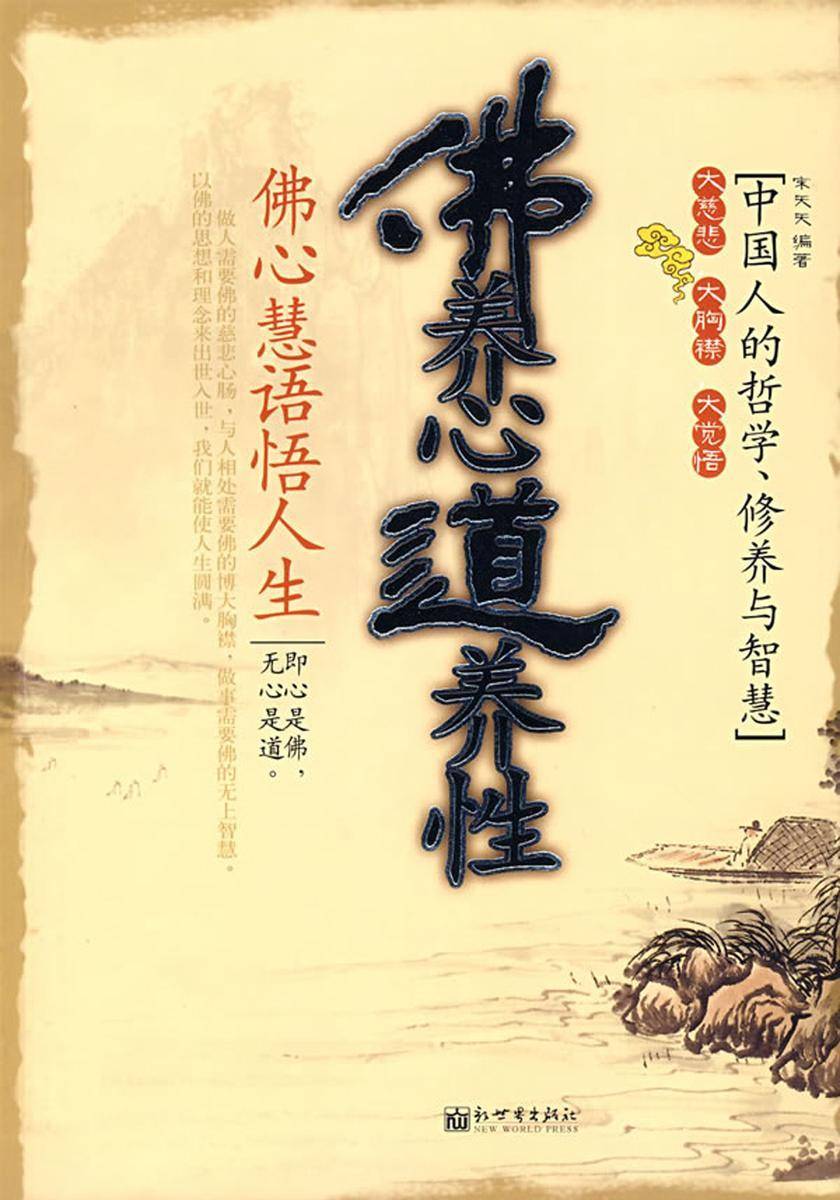 宋天天 编著
[中国人的哲学、修养与智慧]
大慈悲 大胸襟 大觉悟
佛养心道养性
佛心慧语悟人生
即心是佛，
无心是道。
做人需要佛的慈悲心肠，与人相处需要佛的博大胸襟，做事需要佛的无上智慧。
以佛的思想和理念来出世入世，我们就能使人生圆满。
新世界出版社
NEW WORLD PRESS